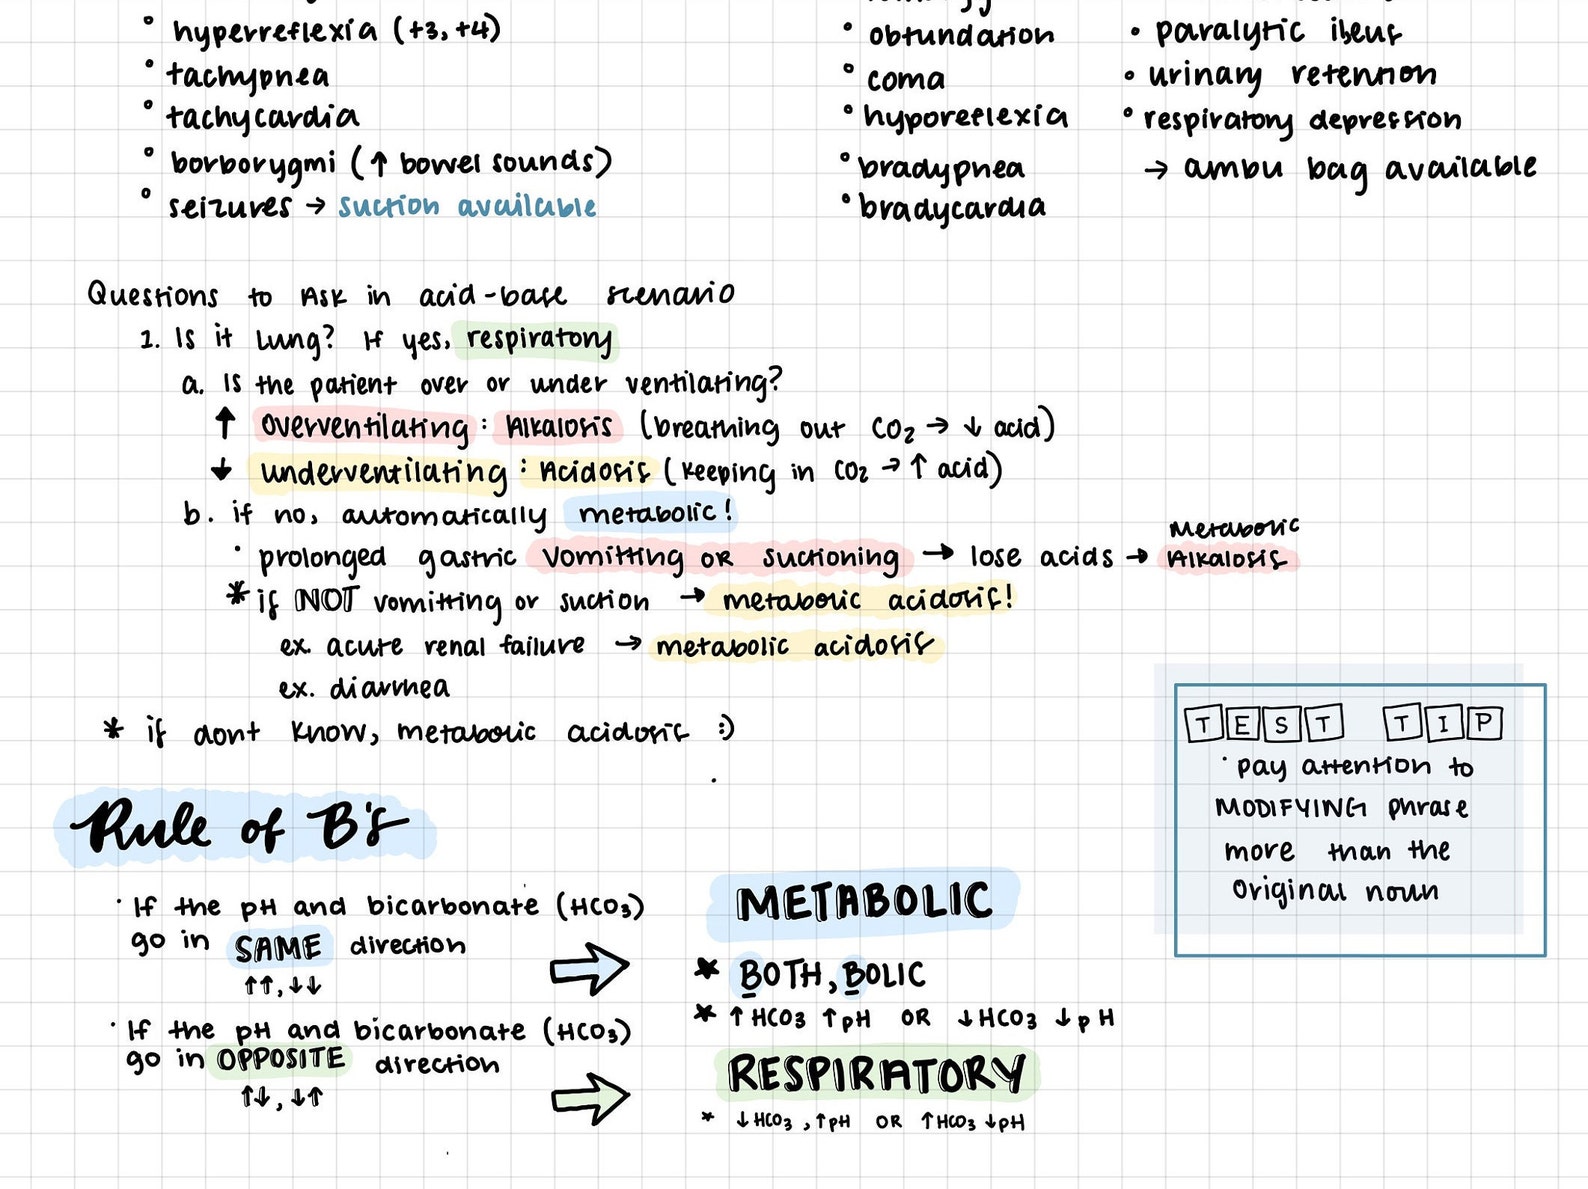 • hyperreflexia (+3, +4)
• tachypnea
• tachycardia
• borborygmi (↑ bowel sounds)
• seizures → suction available
• obtundation
• coma
• hyporeflexia
• bradypnea
• bradycardia
• paralytic ileus
• urinary retention
• respiratory depression
→ ambu bag available
Questions to Ask in acid-base scenario
1. Is it Lung? If yes, respiratory
a. Is the patient over or under ventilating?
↑ overventilating : Alkalosis (breathing out CO₂ → ↓ acid)
↓ underventilating : Acidosis (keeping in CO₂ → ↑ acid)
b. if no, automatically metabolic!
• prolonged gastric vomitting or suctioning → lose acids → Metabolic Alkalosis
* if NOT vomitting or suction → metabolic acidosis!
ex. acute renal failure → metabolic acidosis
ex. diarrhea
* if dont know, metabolic acidosis :)
TEST TIP
• pay attention to
MODIFYING phrase
more than the
original noun
Rule of B's
• If the pH and bicarbonate (HCO₃)
go in SAME direction
↑↑, ↓↓
METABOLIC
* BOTH, BOLIC
* ↑HCO₃ ↑pH OR ↓HCO₃ ↓pH
• If the pH and bicarbonate (HCO₃)
go in OPPOSITE direction
↑↓, ↓↑
RESPIRATORY
* ↓HCO₃, ↑pH OR ↑HCO₃ ↓pH